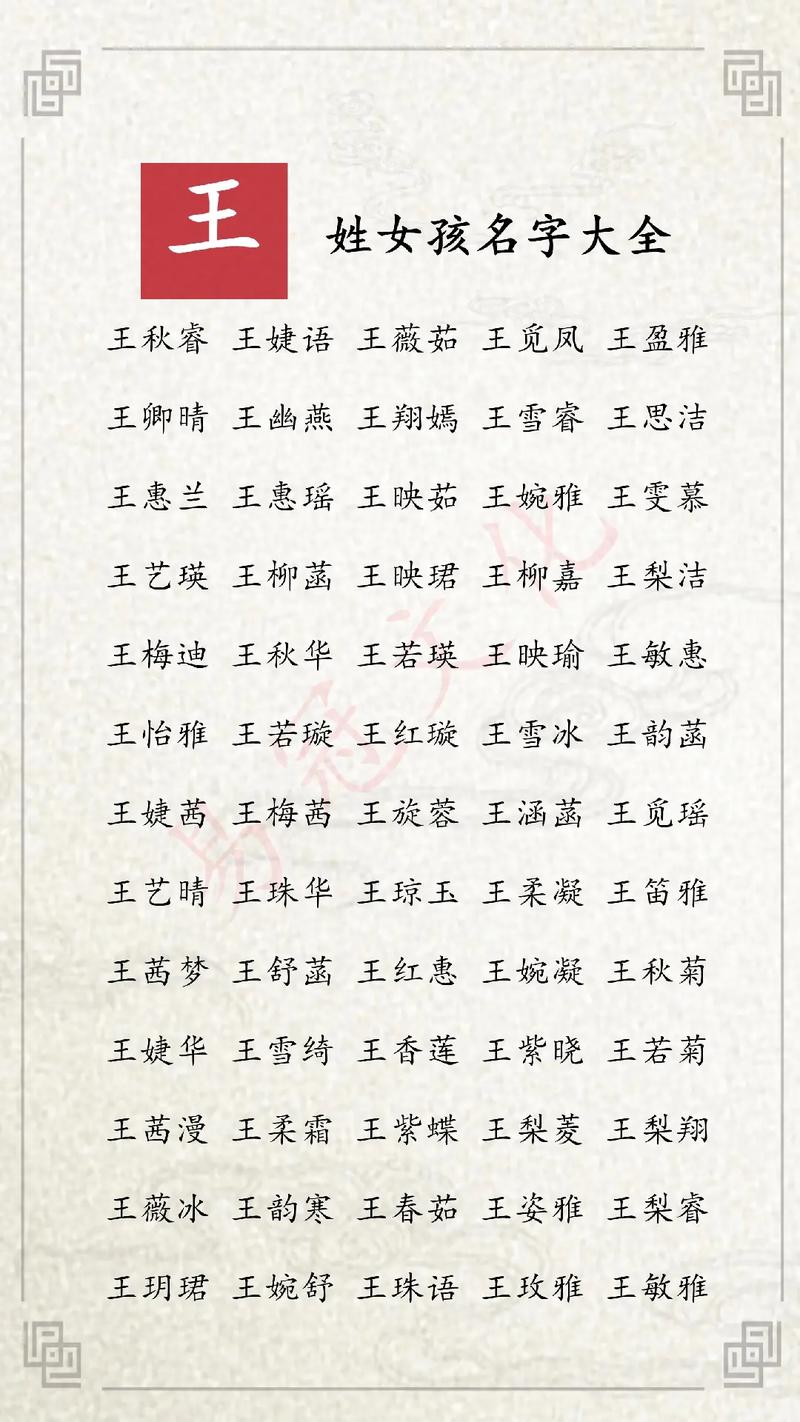 王 姓女孩名字大全
王秋睿 王婕语 王薇茹 王觅凤 王盈雅
王卿晴 王幽燕 王翔嫣 王雪睿 王思洁
王惠兰 王惠瑶 王映茹 王婉雅 王雯慕
王艺瑛 王柳菡 王映珺 王柳嘉 王梨洁
王梅迪 王秋华 王若瑛 王映瑜 王敏惠
王怡雅 王若璇 王红璇 王雪冰 王韵菡
王婕茜 王梅茜 王旋蓉 王涵菡 王觅瑶
王艺晴 王珠华 王琼玉 王柔凝 王笛雅
王茜梦 王舒菡 王红惠 王婉凝 王秋菊
王婕华 王雪绮 王香莲 王紫晓 王若菊
王茜漫 王柔霜 王紫蝶 王梨菱 王梨翔
王薇冰 王韵寒 王春茹 王姿雅 王梨睿
王玥珺 王婉舒 王珠语 王玫雅 王敏雅
易冠文化